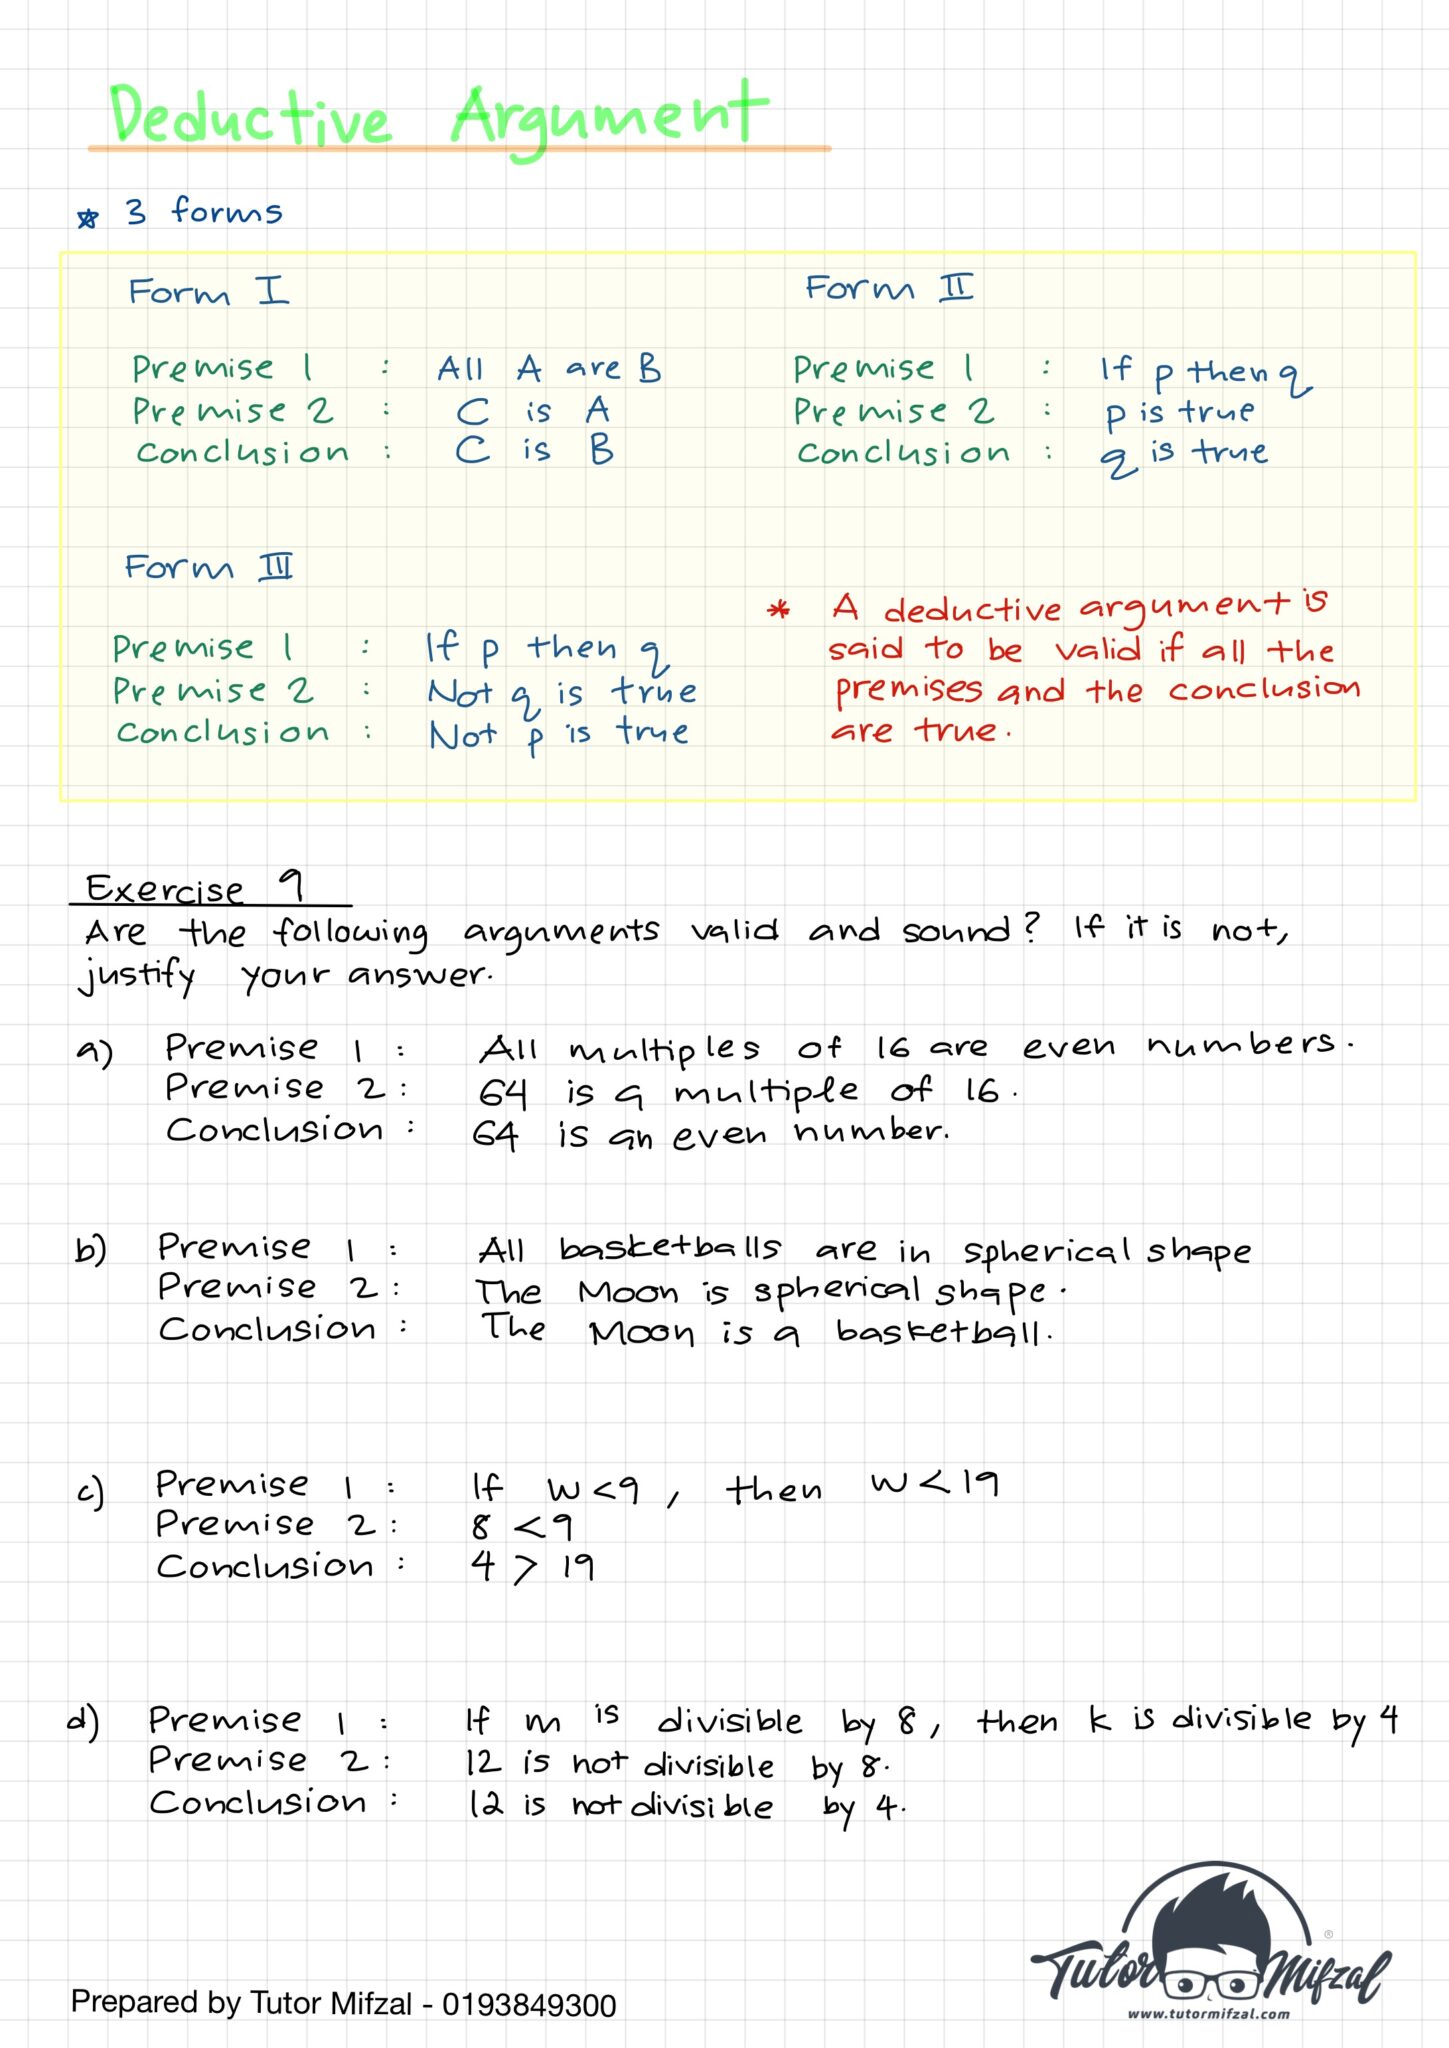 Deductive Argument
* 3 forms
Form I
Premise 1 : All A are B
Premise 2 : C is A
Conclusion : C is B
Form II
Premise 1 : If p then q
Premise 2 : p is true
Conclusion : q is true
Form III
Premise 1 : If p then q
Premise 2 : Not q is true
Conclusion : Not p is true
* A deductive argument is
said to be valid if all the
premises and the conclusion
are true.
Exercise 9
Are the following arguments valid and sound? If it is not,
justify your answer.
a) Premise 1 : All multiples of 16 are even numbers.
Premise 2 : 64 is a multiple of 16.
Conclusion : 64 is an even number.
b) Premise 1 : All basketballs are in spherical shape
Premise 2 : The Moon is spherical shape.
Conclusion : The Moon is a basketball.
c) Premise 1 : If w < 9, then w < 19
Premise 2 : 8 < 9
Conclusion : 4 > 19
d) Premise 1 : If m is divisible by 8, then k is divisible by 4
Premise 2 : 12 is not divisible by 8.
Conclusion : 12 is not divisible by 4.
Tutor Mifzal ®
www.tutormifzal.com
Prepared by Tutor Mifzal - 0193849300